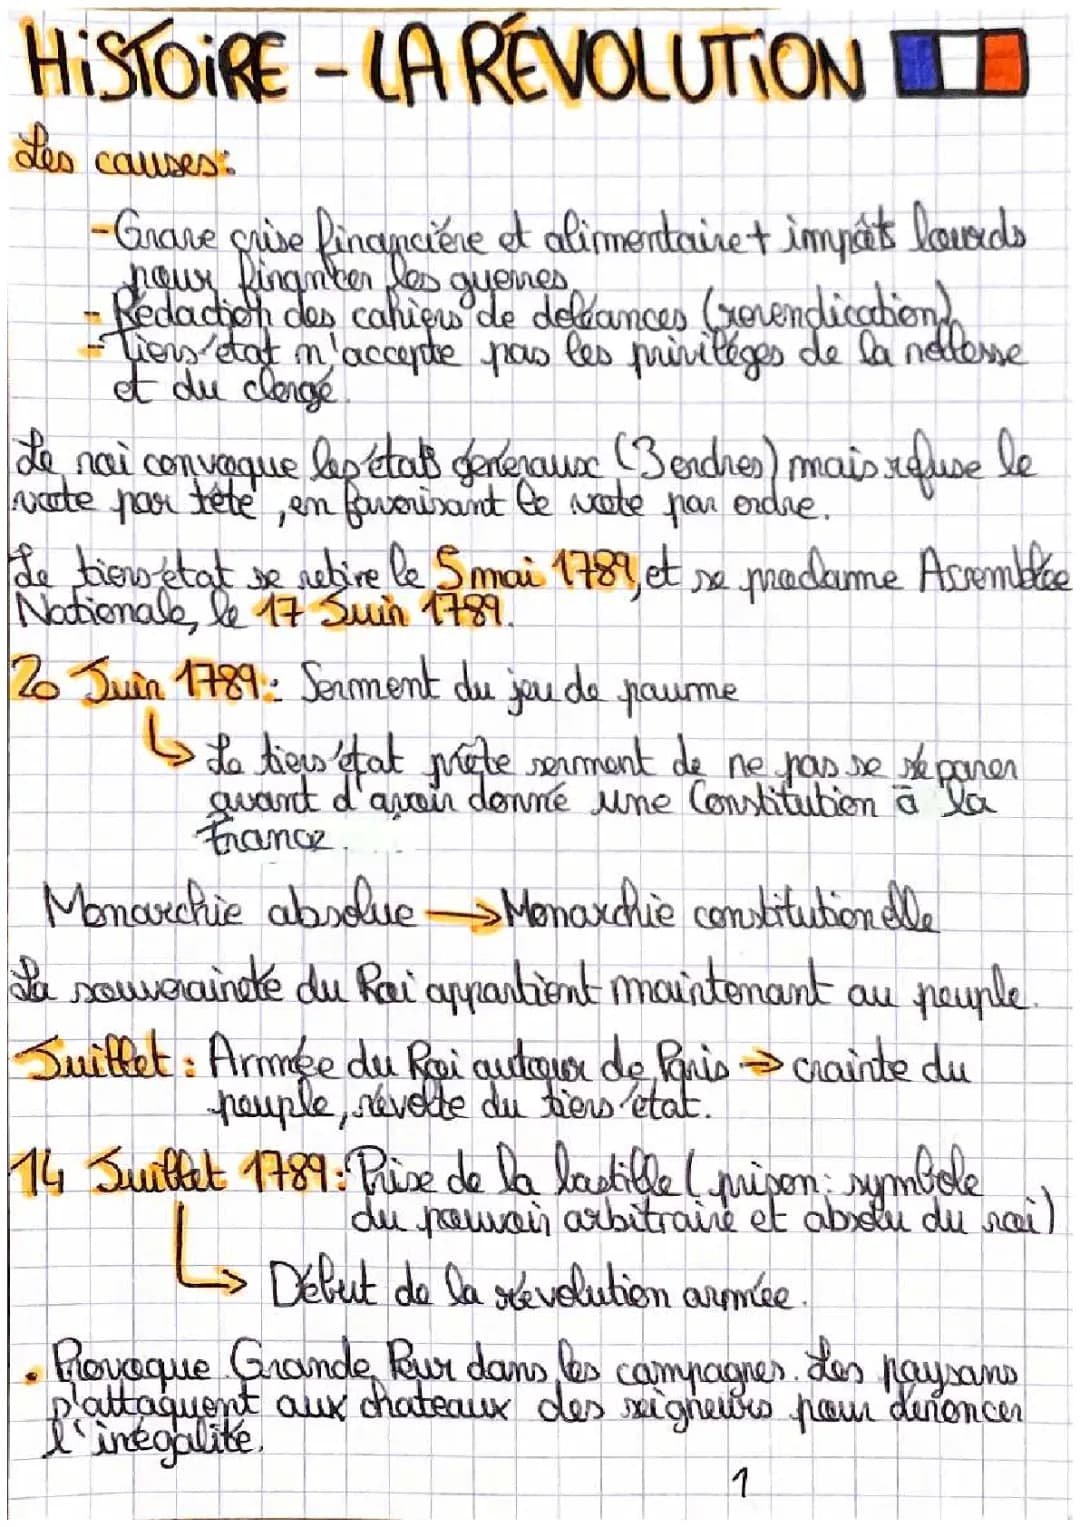 HiSTOiRE - LA RÉVOLUTiON
Les causes:
- Grave crise financière et alimentaire + impôts lourds
pour financer les guerres.
- Rédaction des cahiers de doléances (revendication)
- Tiers-état n'accepte pas les privilèges de la noblesse
et du clergé.
Le roi convoque les états généraux (3 ordres) mais refuse le
vote par tête, en favorisant le vote par ordre.
Le tiers-état se retire le 5 mai 1789, et se proclame Assemblée
Nationale, le 17 Juin 1789.
20 Juin 1789: Serment du jeu de paume
↳ Le tiers-état prête serment de ne pas se séparer
avant d'avoir donné une Constitution à la
France.
Monarchie absolue → Monarchie constitutionelle
La souveraineté du Roi appartient maintenant au peuple.
Juillet: Armée du Roi autour de Paris → crainte du
peuple, révolte du tiers-état.
14 Juillet 1789: Prise de la bastille (prison: symbole
du pouvoir arbitraire et absolu du roi)
↳ Début de la révolution armée.
• Provoque Grande Peur dans les campagnes. Les paysans
s'attaquent aux chateaux des seigneurs pour dénoncer
l'inégalité.
1